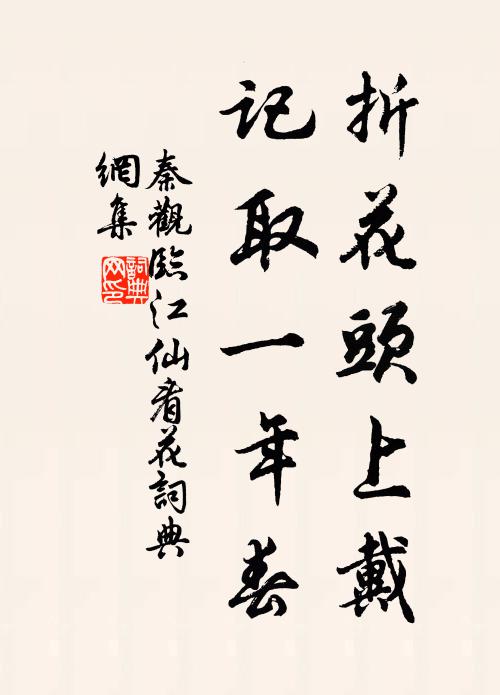 折花頭上戴
記取一年春
秦觀臨江仙看花詞典
網集
詞典網印